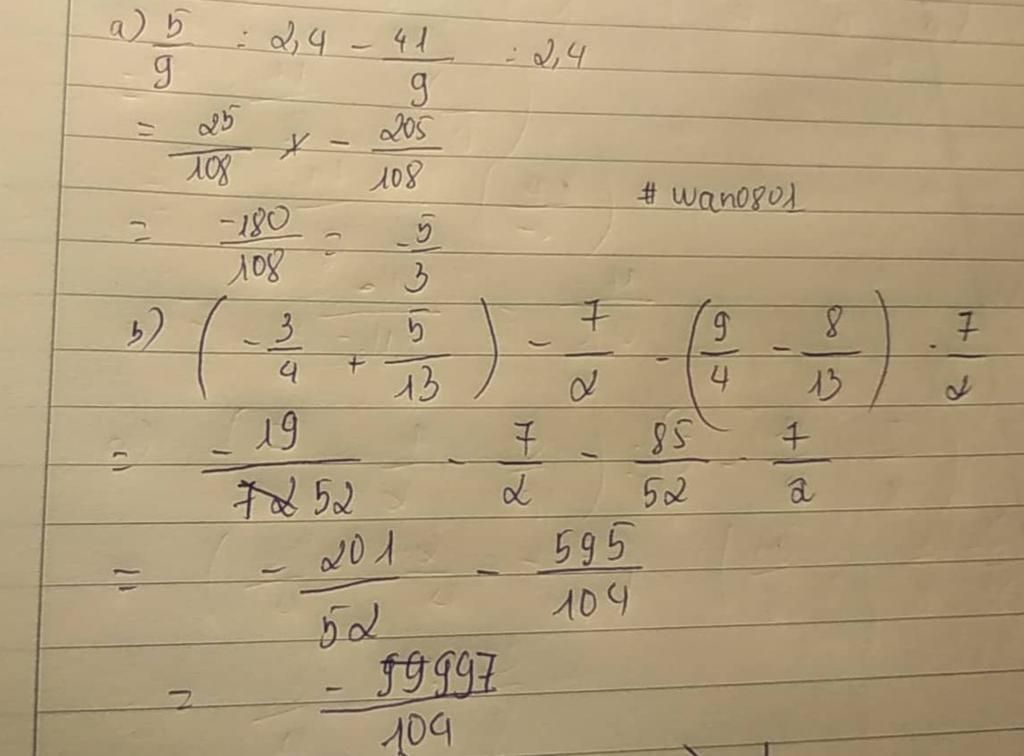 a) 5/9 : 2,4 - 41/9 : 2,4
= 25/108 x - 205/108
#wan0801
= -180/108 = -5/3
b) (-3/4 + 5/13) - 7/2 - (9/4 - 8/13) . 7/2
= -19/52 - 7/2 - 85/52 . 7/2
= - 201/52 - 595/104
= - 997/104